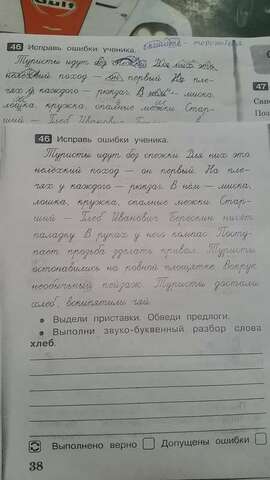 Gulf
46 Исправь ошибки ученика.
Туристы идут без спежки Для них это
нелёхкий поход — он первый На пле-
чях у каждого — рюкзаг. В нём — миска,
лошка, кружка, спалные межки Стар-
ший — Глеб Иванович
47
46 Исправь ошибки ученика.
Туристы идут без спежки Для них это
нелёхкий поход — он первый На пле-
чях у каждого — рюкзаг. В нём — миска,
лошка, кружка, спалные межки Стар-
ший — Глеб Иванович Берёскин нисёт
паладку. В руках у него компас Посту-
пает прозьба зделать привал. Туристы
астонавились на ровной площятке Вокруг
необычьный пейзаж Туристы достали
хлеб, вскипятили чяй.
• Выдели приставки. Обведи предлоги.
• Выполни звуко-буквенный разбор слова
хлеб.
Выполнено верно Допущены ошибки
38